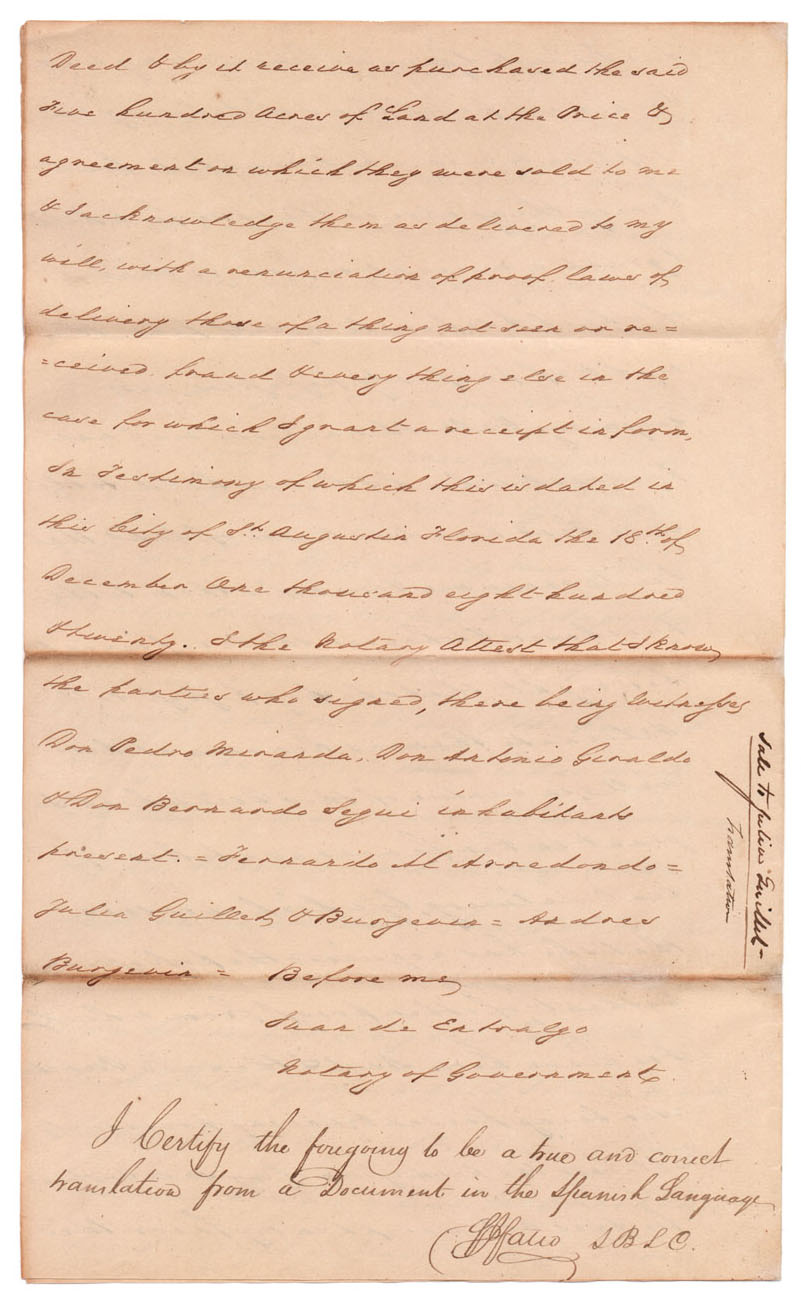 Deed & by it receive as purchased the said
Five hundred Acres of Land at the Price &
agreement on which they were sold to me
& I acknowledge them as delivered to my
will, with a renunciation of proof laws of
delivery those of a thing not seen or re=
=ceived fraud & every thing else in the
case for which I grant a receipt in form,
In Testimony of which this is dated in
this City of St. Augustin Florida the 18th. of
December One thousand eight hundred
& twenty. I the Notary Attest that I know
the parties who signed, there being Witnesses
Don Pedro Miranda, Don Antonio Giraldo
& Don Bernardo Segui inhabitants
present. = Fernando M Arredondo =
Julia Guillet & Burgevin = Andres
Burgevin = Before me
Juan de Entralgo
Notary of Government.
I Certify the foregoing to be a true and correct
translation from a Document in the Spanish Language
Fatio S B L C.
Sale to Julia Guillet-
Translation